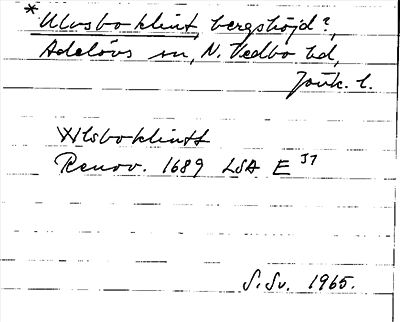 * Ulvsboklint, bergshöjd?,
Adelövs sn, N. Vedbo hd,
Jönk. l.
Wlsboklintt
Renov. 1689 LSA E 57
S.Sv. 1965.